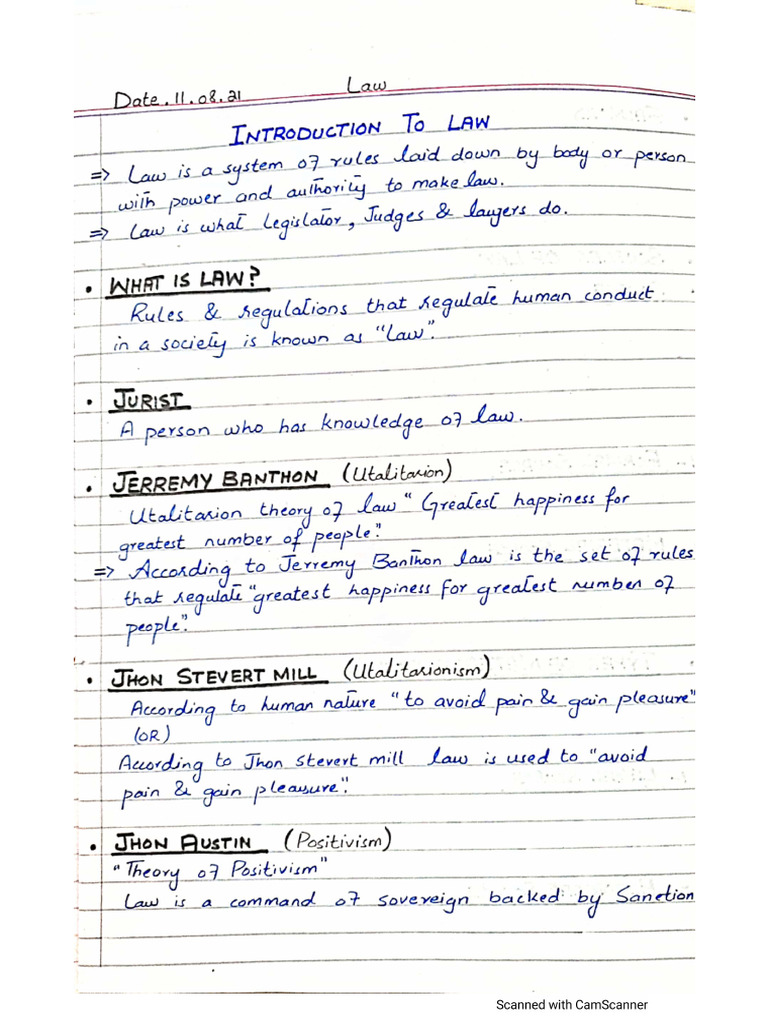 Law
Date. 11.08.21
INTRODUCTION TO LAW
=> Law is a system of rules laid down by body or person
with power and authority to make law.
=> Law is what legislator, Judges & lawyers do.
• WHAT IS LAW?
Rules & regulations that regulate human conduct
in a society is known as "law".
• JURIST
A person who has knowledge of law.
• JERREMY BANTHON (Utalitarion)
Utalitarion theory of law "Greatest happiness for
greatest number of people".
=> According to Jerremy Banthon law is the set of rules
that regulate "greatest happiness for greatest number of
people".
• JHON STEVERT MILL (Utalitarionism)
According to human nature "to avoid pain & gain pleasure"
(OR)
According to Jhon Stevert mill law is used to "avoid
pain & gain pleasure".
• JHON AUSTIN (Positivism)
"Theory of Positivism"
Law is a command of sovereign backed by Sanction
Scanned with CamScanner